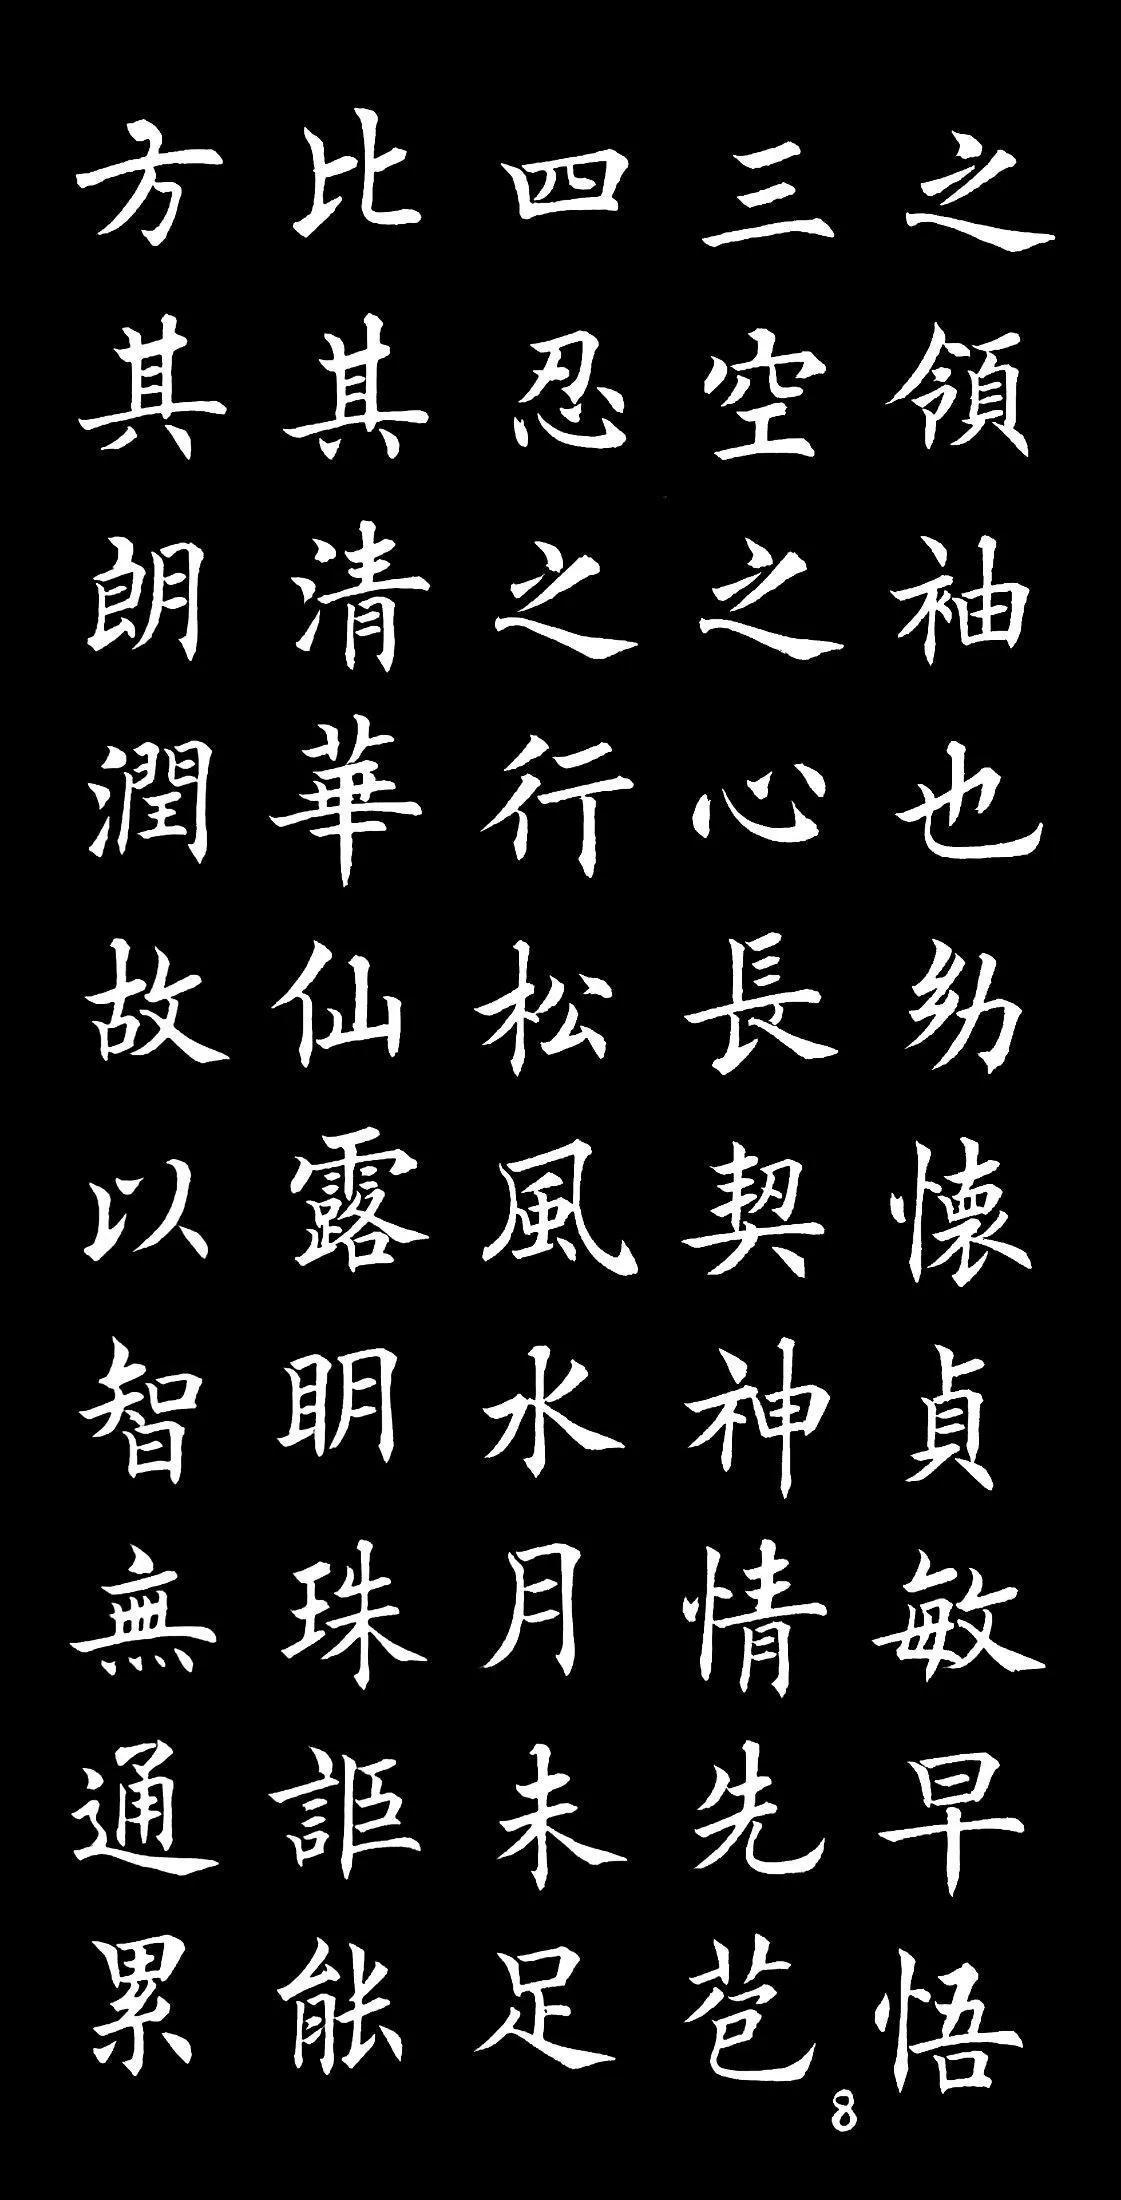 之領袖也幼懷貞敏早悟
三空之心長契神情先苞
四忍之行松風水月未足
比其清華仙露明珠詎能
方其朗潤故以智無通累
8